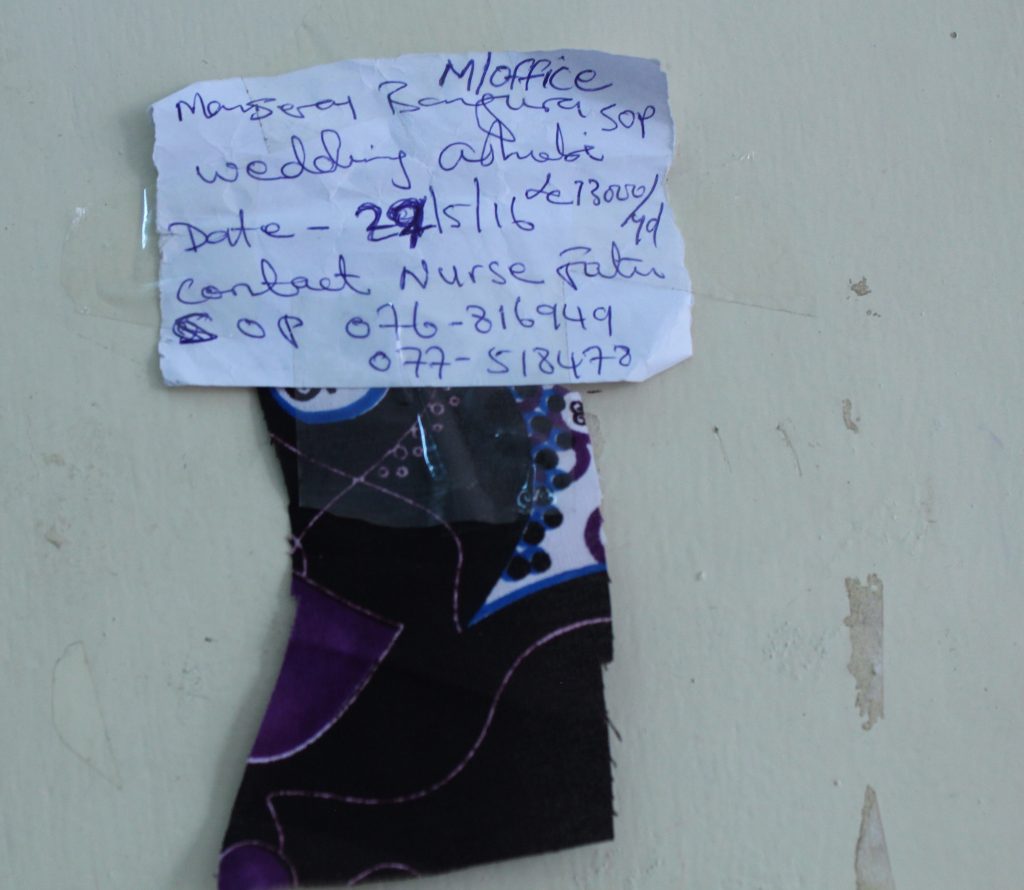 M/office
Manseray Bangura SOP
wedding ashuobi
Date - 29/5/16 Le 13000/yd
contact Nurse Fatu
SOP 076-816949
077-518478